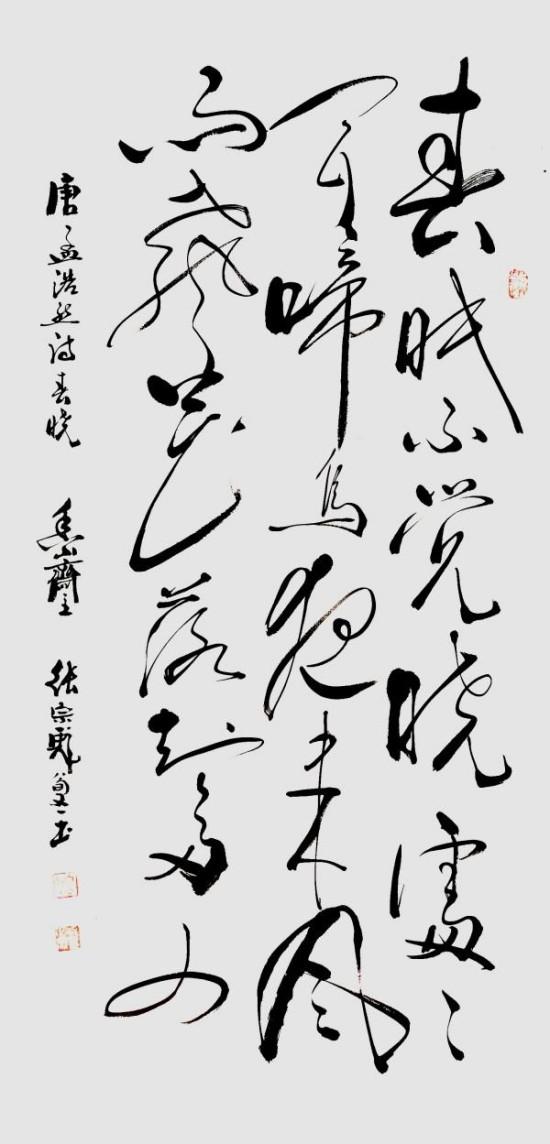 春眠不觉晓處〻
闻啼鸟夜来风
雨聲花落知多少
唐孟浩然诗春晓 山齋主 张宗 书